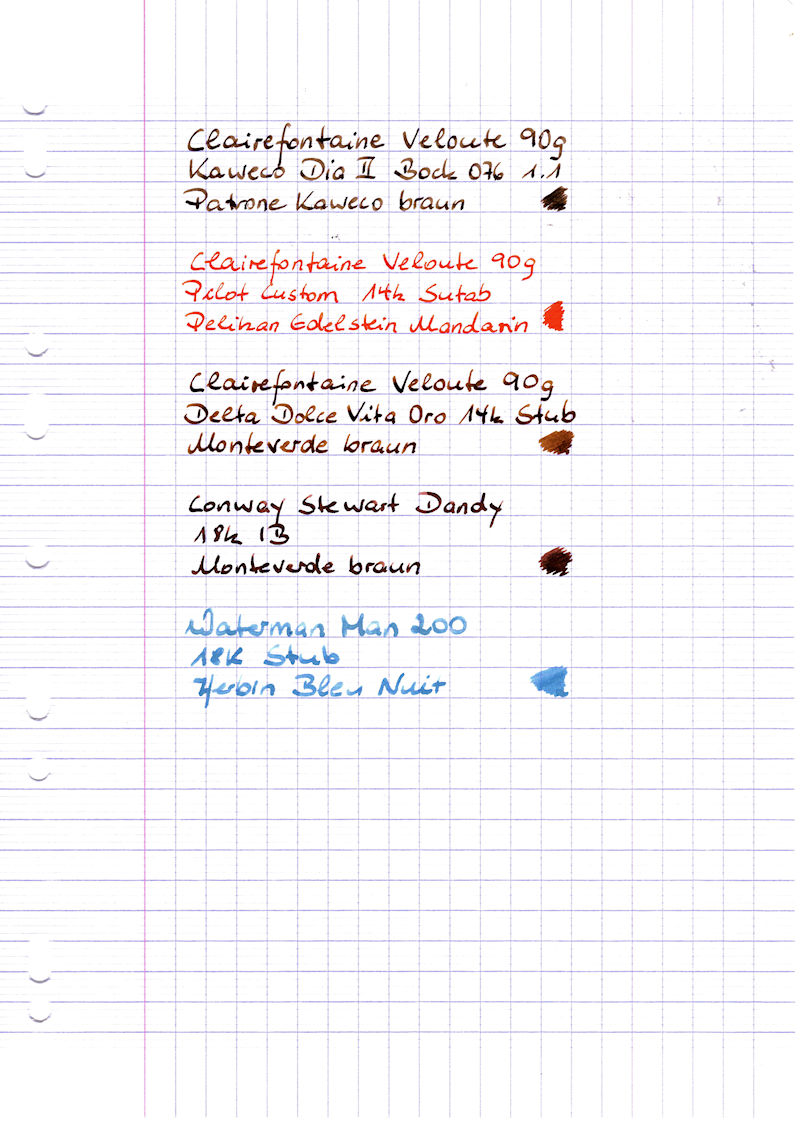 Clairefontaine Veloute 90g
Kaweco Dia II Bock 076 1.1
Patrone Kaweco braun
Clairefontaine Veloute 90g
Pilot Custom 14k Sutab
Pelikan Edelstein Mandarin
Clairefontaine Veloute 90g
Delta Dolce Vita Oro 14k Stub
Monteverde braun
Conway Stewart Dandy
18k IB
Monteverde braun
Waterman Man 200
18K Stub
Herbin Bleu Nuit